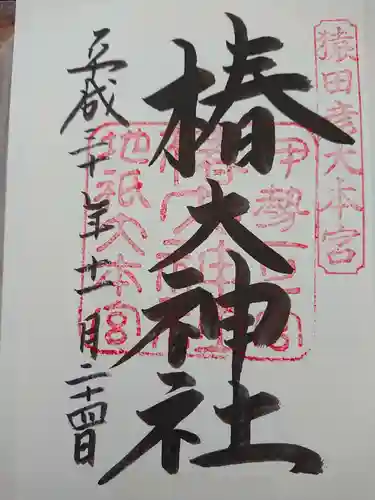 猿田彦大本宮
椿大神社
伊勢一宮
椿大神社
地祇大本宮
平成三十年十一月二十四日